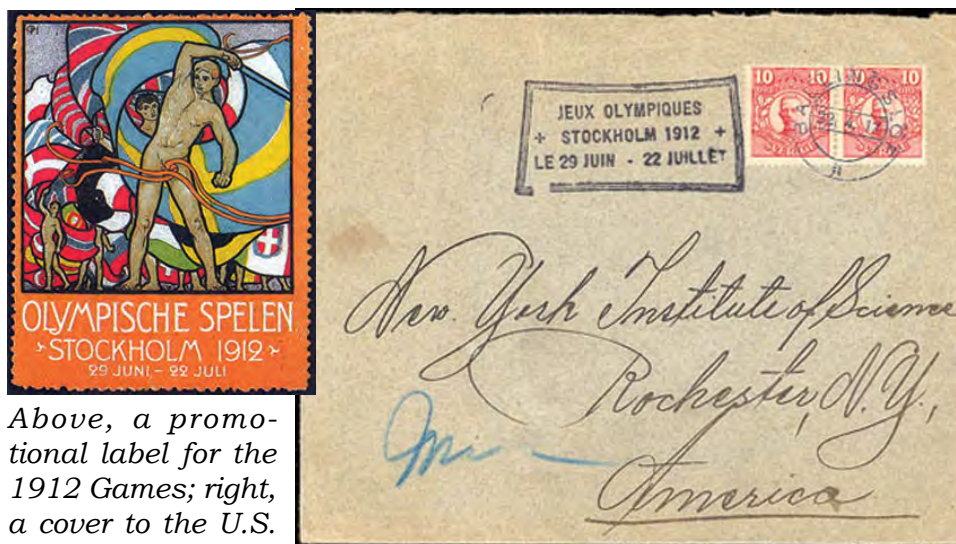 OLYMPISCHE SPELEN
STOCKHOLM 1912
29 JUNI - 22 JULI
Above, a promo-
tional label for the
1912 Games; right,
a cover to the U.S.
JEUX OLYMPIQUES
+ STOCKHOLM 1912 +
LE 29 JUIN - 22 JUILLET
10 10 10 10
SVERIGE SVERIGE
New York Institute of Science
Rochester, N.Y.,
America